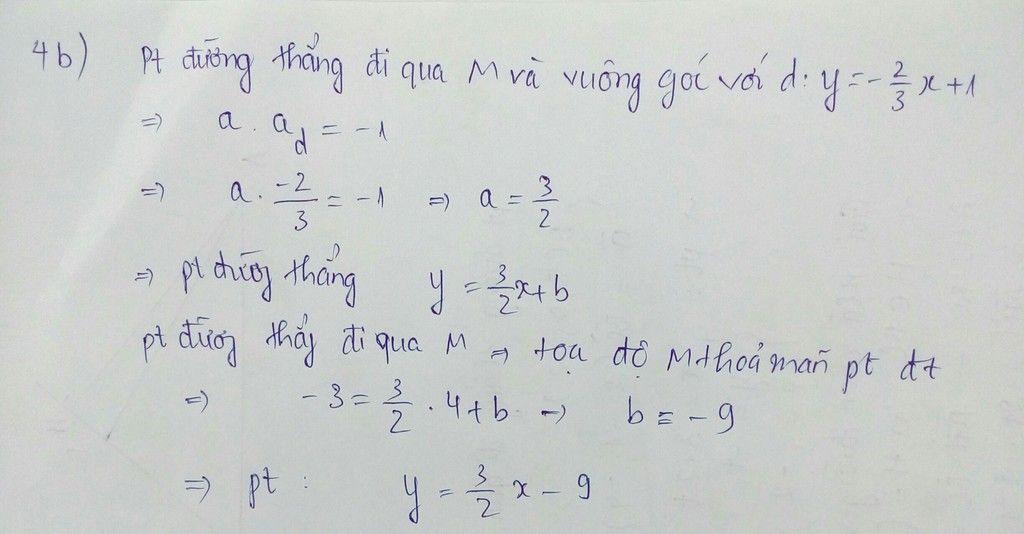 4b) Pt đường thẳng đi qua M và vuông góc với d: y = -2/3 x + 1
=> a . a_d = -1
=> a . -2/3 = -1 => a = 3/2
=> pt đường thẳng y = 3/2 x + b
pt đường thẳng đi qua M => tọa độ M thoả mãn pt đt
=> -3 = 3/2 . 4 + b => b = -9
=> pt : y = 3/2 x - 9